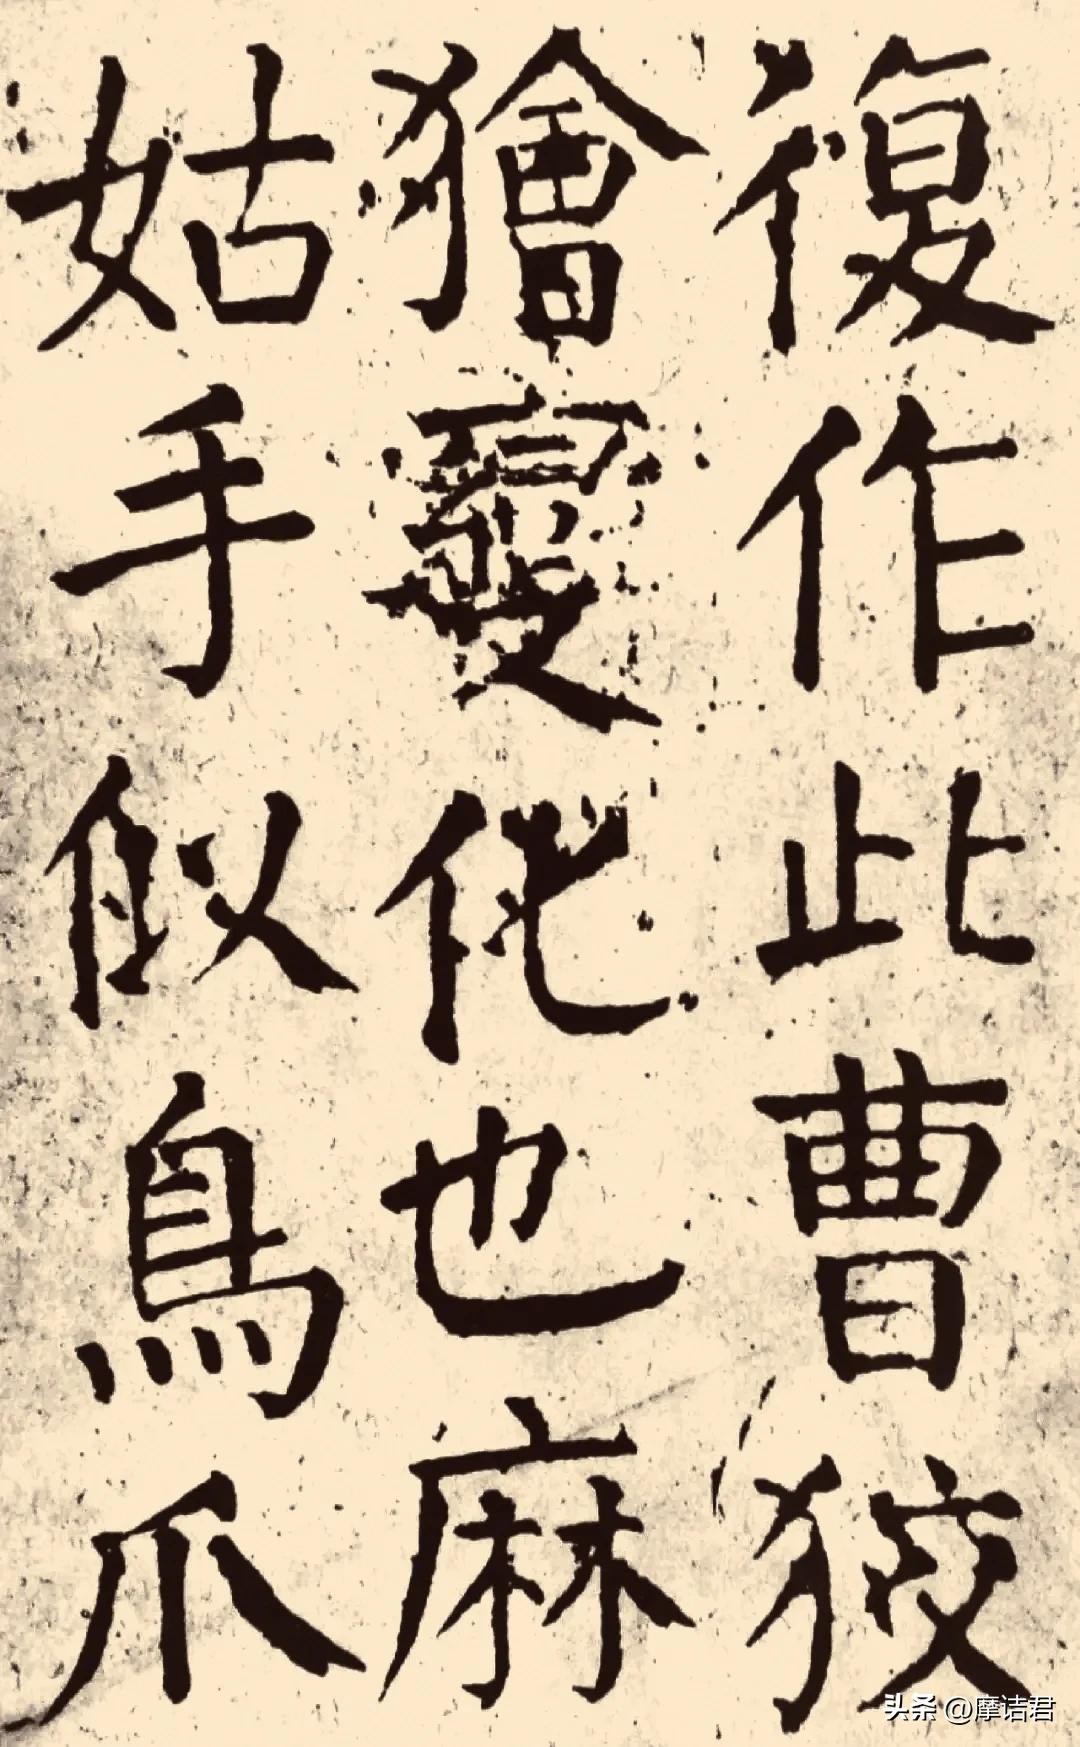 復作此曹狡
獪變化也麻
姑手似鳥爪
头条 @摩诘君